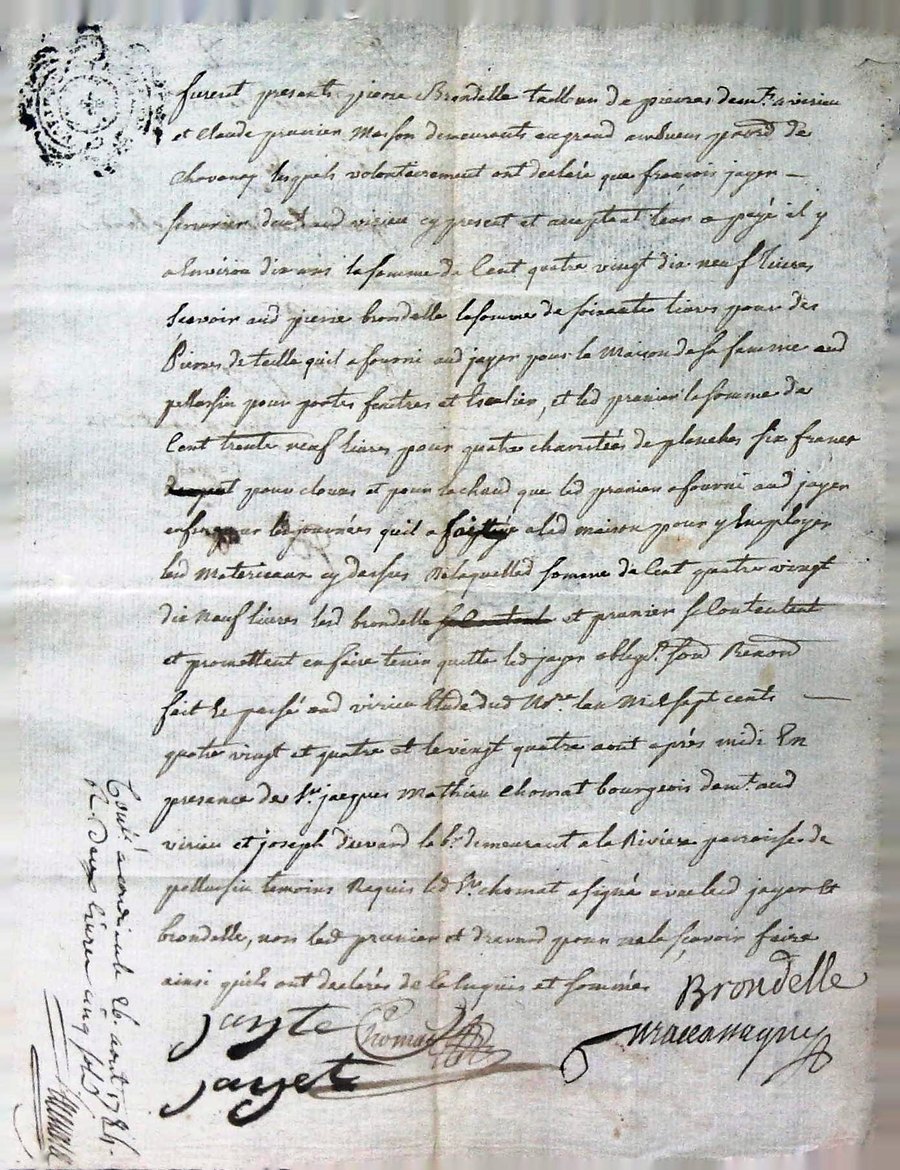 furent presents pierre Brondelle tailleur de pierres demt. a virieu
et Claude prunier Mason demeurants au grand embuent parrd de
Chavanay lesquels volontairement ont declaré que françois jayer
serrurier demt. aud virieu cy present et acceptant leur a payé il y
a Environ dix ans la somme de Cent quatre vingt dix neuf livres
Scavoir aud pierre brondelle la somme de soixante livres pour des
Pierres de taille quil a fourni aud jayer pour la Maison de sa femme aud
pellussin pour portes fenetres et Escalier, et led prunier la somme de
Cent trente neuf livres pour quatre charretées de planches six francs
pour cloux et pour la chaud que led prunier a fourni aud jayer
enfin pour les journées quil a a lad maison pour y Employer
les Materiaux cy dessus De laquelle somme de Cent quatre vingt
dix neuf livres led brondelle et prunier se Contentent
et promettent en faire tenir quitte led jayer obligt. soud Renond
fait Et passé aud virieu Etude dud Nore. lan Mil sept cents
quatre vingt et quatre et le vingt quatre aout après midi En
presance de Sr. jacques Mathieu Chomat bourgeois demt. aud
virieu et joseph dervard lab. demeurant a la Riviere parroisse de
pellussin temoins Requis led Sr. chomat a signé avec led jayer Et
brondelle, non led prunier et dravard pour ne le sçavoir faire
ainsi quils ont declarés de ce Enquis et sommés
Brondelle
Chomat
jayet
Con.lé a condrieu le 26. aout 1784.
R. deux livres cinq sols